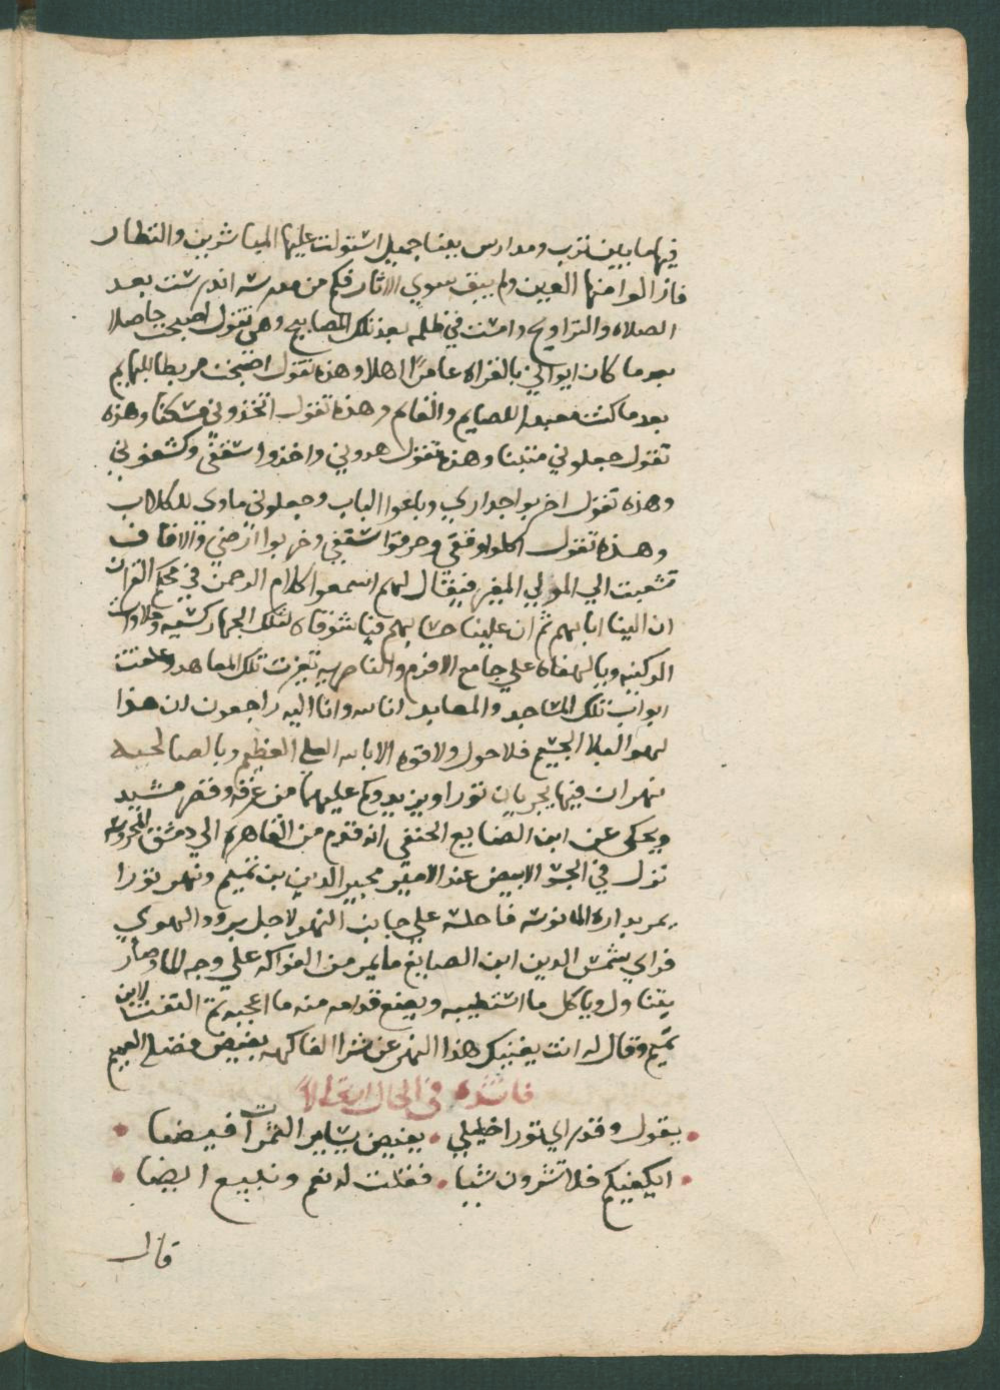 فيها ما بين ترب ومدارس بينا جميل استولت عليها المباشرين والنظار
فازالوا منها العين ولم يبق سوى الاثار فكم من مدرسه اندرست بعد
الصلاه والتراويح وامست في ظلمه بعد تلك المصابيح وهي تقول اصبحت حاصلا
بعد ما كان ايواني بالقراه عامرا اهلا وهذه تقول اصبحت مربطا للبهايم
بعد ما كنت معبدا للصايم والقايم وهذه تقول اتخذوني مسكنا وهذه
تقول جعلوني متبنا وهذه تقول هدوني واخذوا سقفي وكشفوني
وهذه تقول اخربوا جداري وباعوا الباب وجعلوني ماوى للكلاب
وهذه تقول اكلوا وقفي وحرقوا سقفي وخربوا ارضي والافاف
تشعبت الي المولي المغير فيقال لهم اسمعوا كلام الرحمن في محكم القران
ان الينا ايابهم ثم ان علينا حسابهم فيا شوقاه لتلك الجهاركسيه وحلاوات
الركنيه ويا لهفاه علي جامع الافرم والناصريه تعيرت تلك المعاهد وغلقت
ابواب تلك المساجد والمعابد انا لله وانا اليه راجعون ان هذا
لهو البلا الجسيم فلا حول ولا قوه الا بالله العلي العظيم وبالصالحيه
نهران فيها يجريان تورا ويزيد وكم عليهما من غرفه وقصر مشيد
ويحكى عن ابن الصايع الحنفي انه قدم من القاهره الي دمشق المحروسه
نزل في الجسر الابيض عند الامير مجير الدين بن تميم ونهر تورا
يمر بداره المانوسه فاجلسه علي جانب النهر لاجل برود الهوي
فراي شمس الدين ابن الصايغ ما يمر من الفواكه علي وجه الما وصار
يتناول وياكل ما استطيبه ويضع قدامه منه ما اعجبه ثم التفت لابن
تميم وقال له انت يغنيك هذا النهر عن شرا الفاكهه بفيض فضله العميم
فانشده في الحال ارتجالا
يقول وقد راي تورا خليلي • يفيض بساير الثمرات فيضا
ايكفيكم فلا تشرون شيا • فقلت له نعم ونبيع ايضا
قال